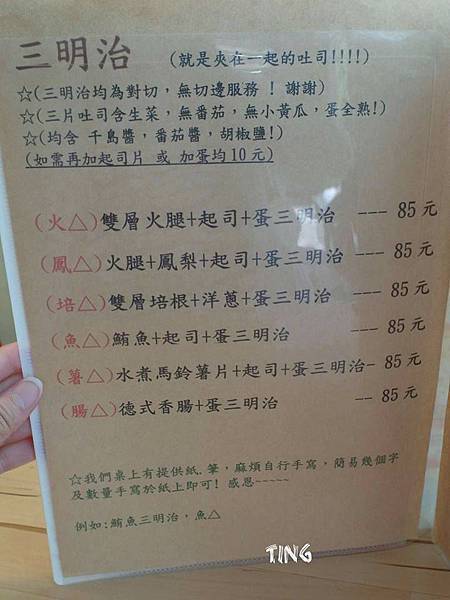 三明治 (就是夾在一起的吐司!!!!)
☆(三明治均為對切，無切邊服務 ! 謝謝)
☆(三片吐司含生菜，無番茄，無小黃瓜，蛋全熟!)
☆(均含 千島醬，番茄醬，胡椒鹽!)
(如需再加起司片 或 加蛋均10元)
(火△)雙層火腿+起司+蛋三明治 --- 85元
(鳳△)火腿+鳳梨+起司+蛋三明治 --- 85元
(培△)雙層培根+洋蔥+蛋三明治 --- 85元
(魚△)鮪魚+起司+蛋三明治 --- 85元
(薯△)水煮馬鈴薯片+起司+蛋三明治- 85元
(腸△)德式香腸+蛋三明治 -- 85元
☆我們桌上有提供紙.筆，麻煩自行手寫，簡易幾個字
及數量手寫於紙上即可! 感恩~~~~~
例如:鮪魚三明治，魚△
TING